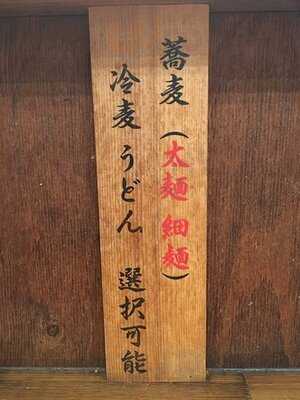 蕎麦(太麺 細麺)
冷麦 うどん 選択可能